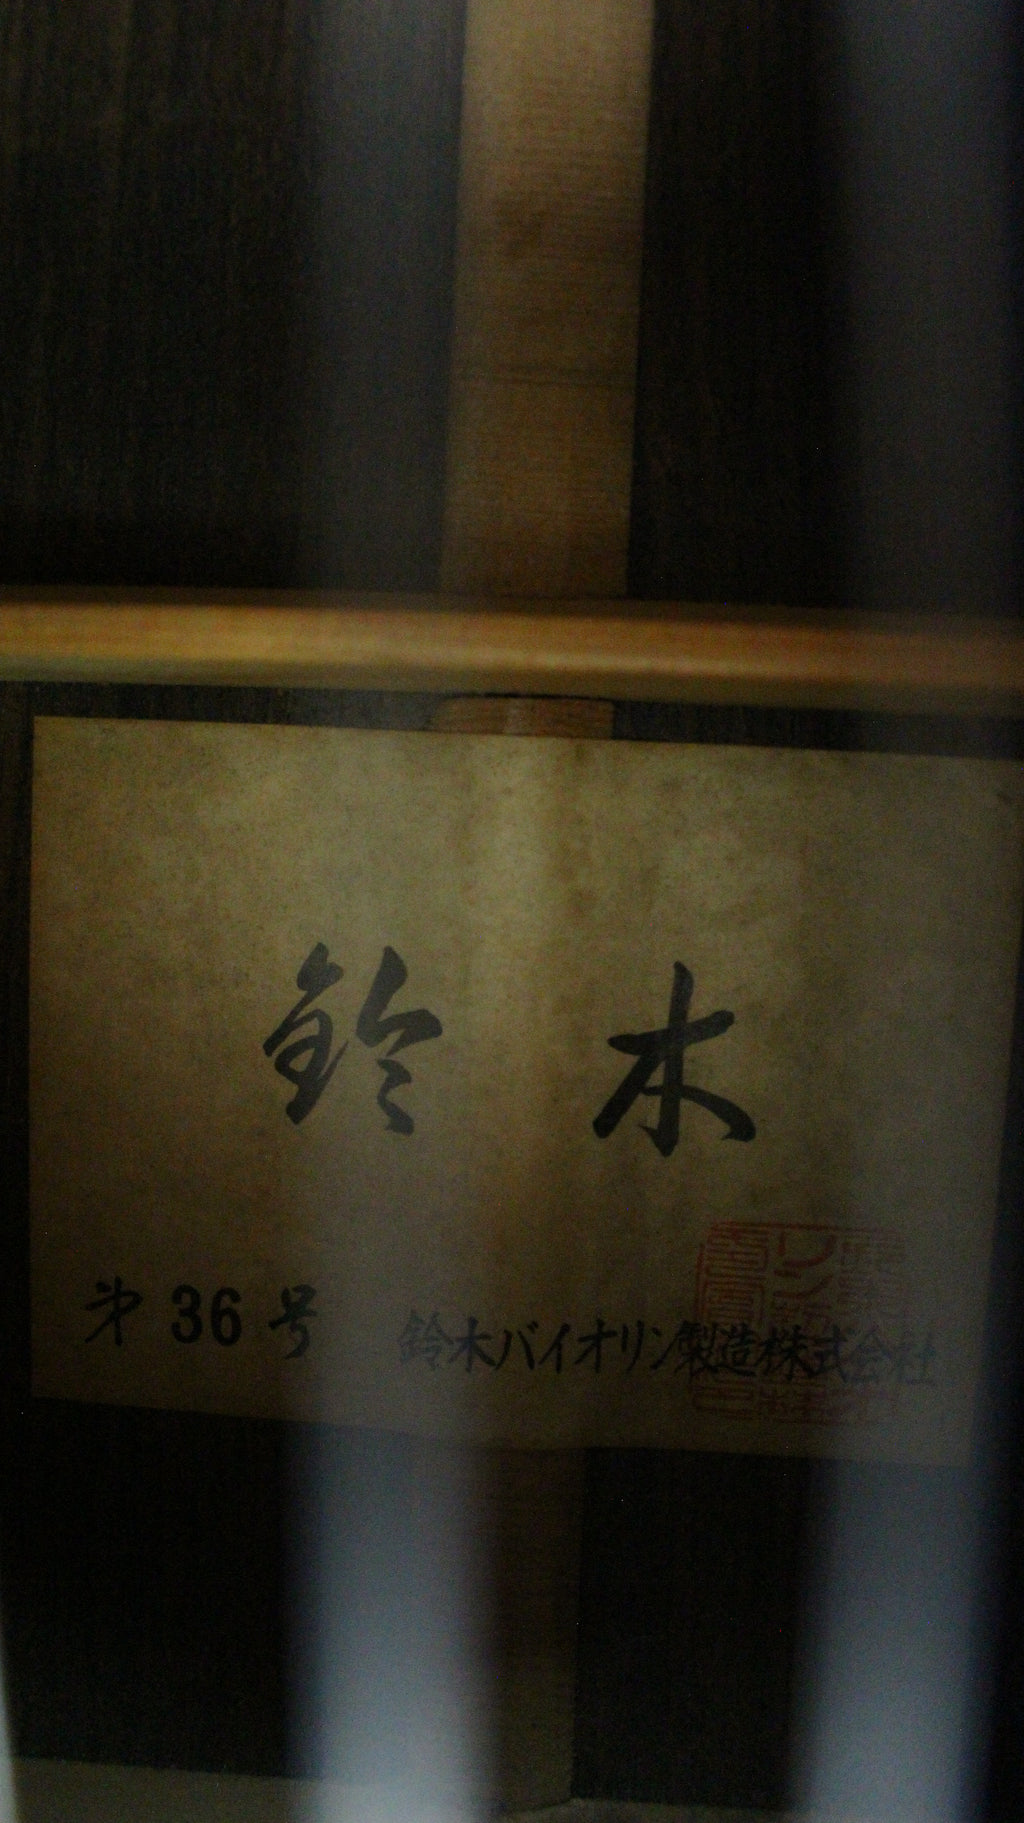 鈴木
第36号
鈴木バイオリン製造株式会社